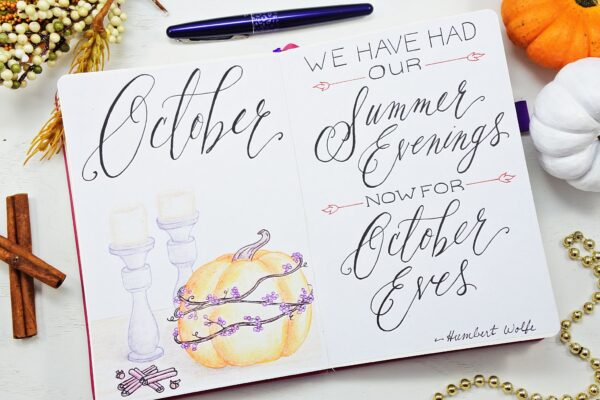 October
WE HAVE HAD
OUR
Summer
Evenings
NOW FOR
October
Eves
- Humbert Wolfe